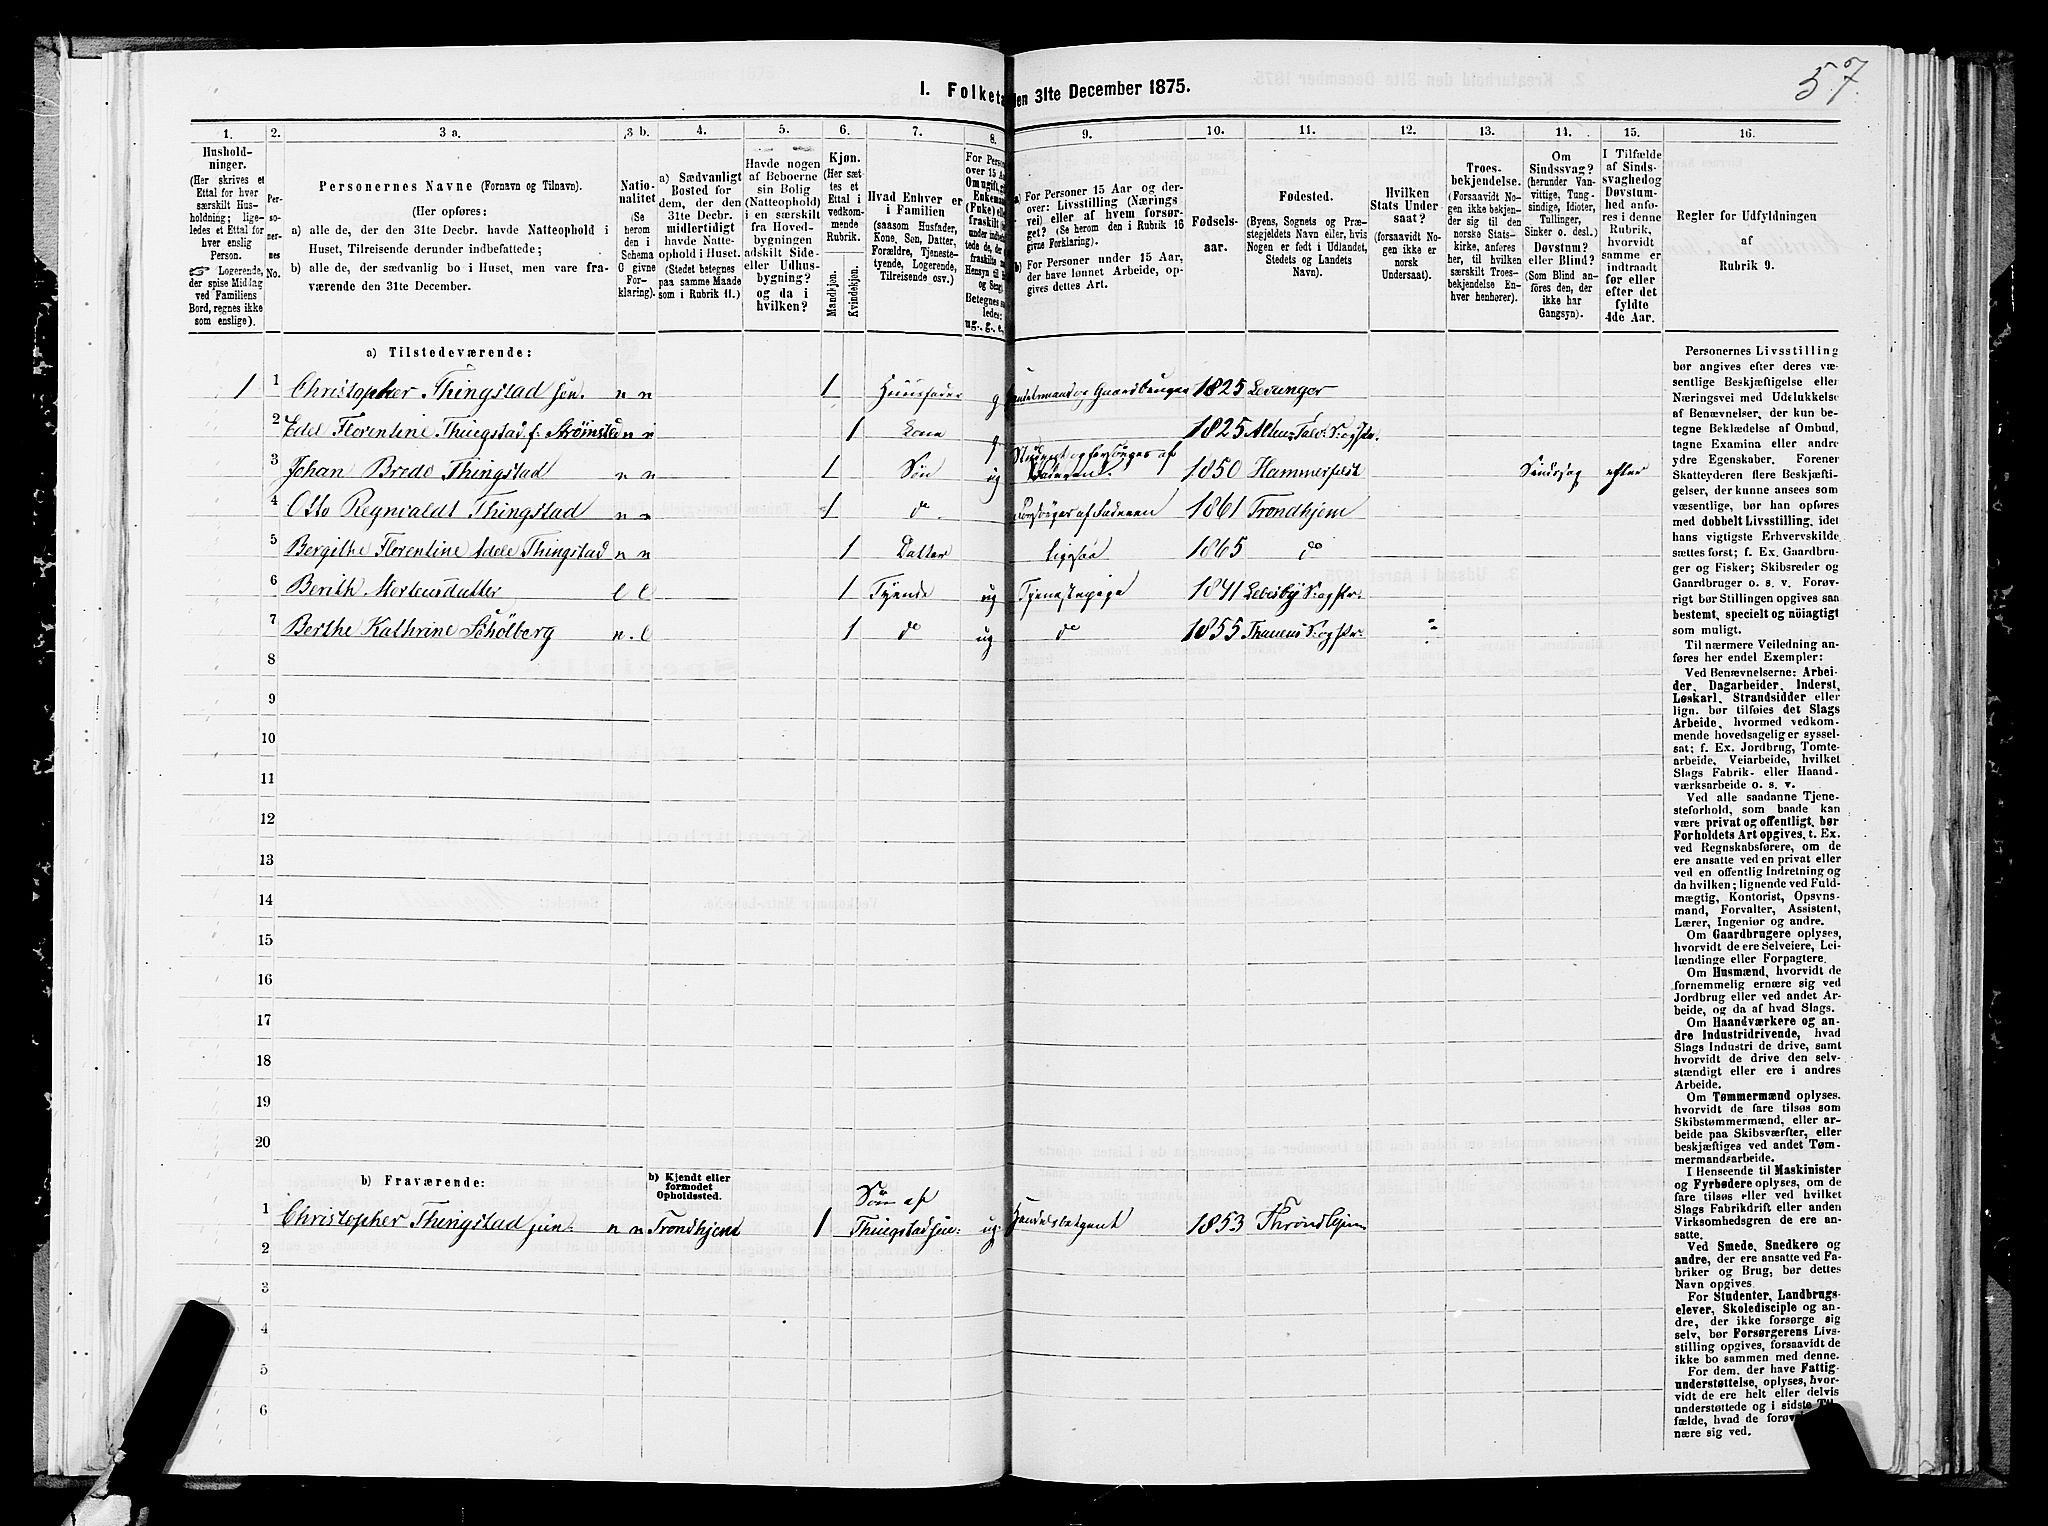 57.
I. Folketæ
den 31te December 1875.
1. 2. 3 a. 3 b. 4. 5. 6. 7. 8. 9. 10. 11. 12. 13. 14. 15. 16.
Hushold-
ninger.
(Her skrives et
Ettal for hver
særskilt Hus-
holdning; lige-
ledes et Ettal for
hver enslig
Person.
☞ Logerende,
der spise Middag
ved Familiens
Bord, regnes ikke
som enslige).
Per-
so-
ner-
nes
No.
Personernes Navne (Fornavn og Tilnavn).
(Her opføres:
a) alle de, der den 31te Decbr. havde Natteophold i
Huset, Tilreisende derunder indbefattede;
b) alle de, der sædvanlig bo i Huset, men vare fra-
værende den 31te December.
Natio-
nalitet
(Se
herom
den i
Schema
G givne
For-
klaring).
a) Sædvanligt
Bosted for
dem, der den
31te Decbr.
midlertidigt
havde Natte-
ophold i Huset.
(Stedet betegnes
paa samme Maade
som i Rubrik 11.)
Havde nogen
af Beboerne
sin Bolig
(Natteophold)
i en særskilt
fra Hoved-
bygningen
adskilt Side-
eller Udhus-
bygning?
og da i
hvilken?
Kjøn.
(Her sæt-
tes et
Ettal i
vedkom-
mende
Rubrik.
Mandkjøn.
Kvindekjøn.
Hvad Enhver er
i Familien
(saasom Husfader,
Kone, Søn, Datter,
Forældre, Tjeneste-
tyende, Logerende,
Tilreisende osv.)
For Perso
over 15 Aar
Om ugift, g
Enkeman
(Enke) elle
fraskilt
Betegnes saa-
ledes:
ug., g., e.
a) For Personer 15 Aar og der-
over: Livsstilling (Nærings
vei) eller af hvem forsør-
get? (Se herom den i Rubrik 16
givne Forklaring).
b) For Personer under 15 Aar,
der have lønnet Arbeide, op-
gives dettes Art.
Fødsels-
aar.
Fødested.
(Byens, Sognets og Præ-
stegjeldets Navn eller, hvis
Nogen er født i Udlandet,
Stedets og Landets
Navn).
Hvilken
Stats Under
saat?
(forsaavidt No-
gen ikke er
norsk
Undersaat).
Troes-
bekjendelse.
(Forsaavidt No-
gen ikke bekjen-
der sig til den
norske Stats-
kirke, anføres
her, til hvilken
særskilt Troes-
bekjendelse En-
hver henhører).
Om
Sindssvag?
(herunder Van-
vittige, Tung-
sindige, Idioter,
Tullinger,
Sinker o. desl.)
Døvstum?
eller Blind?
(Som Blind an-
føres den, der
ikke har
Gangsyn).
I Tilfælde
af Sinds-
svaghed og
Døvstum-
hed anfø-
res i denne
Rubrik,
hvorvidt
samme er
indtraadt
før eller
efter det
fyldte
4de Aar.
Regler for Udfyldningen
af
Rubrik 9.
a) Tilstedeværende:
1 1 Christopher Thingstad sen. n n 1 Huusfader g Handelsmand og Gaardbruger 1825 Levanger
2 Edel Florentine Thingstad f: Strømsted n n 1 Kone g 1825 Alten Talv: S: og Pr.
3 Johan Bredo Thingstad n n 1 Søn ug Student og forsørges af Faderen. 1850 Hammerfest Sindssvag efter
4 Otto Regnvaldt Thingstad n n 1 do. Forsørges af Faderen 1861 Trondhjem
5 Bergithe Florentine Edele Thingstad n n 1 Datter ligesaa 1865 do
6 Berith Mortensdatter l l 1 Tyende ug Tjenestepige 1841 Lebesby S: og Pr.
7 Berthe Kathrine Schølberg n. l 1 do ug do 1855 Thanens S: og Pr.
8
9
10
11
12
13
14
15
16
17
18
19
20
b) Fraværende:
b) Kjendt eller
formodet
Opholdssted.
1 Christopher Thingstad jun. n n Trondhjem 1 Søn af Thingstad sen: ug: Handelsbetjent 1853 Throndhjem
2
3
4
5
6
Personernes Livsstilling
bør angives efter deres væ-
sentlige Beskjæftigelse eller
Næringsvei med Udelukkelse
af Benævnelser, der kun be-
tegne Beklædelse af Ombud,
tagne Examina eller andre
ydre Egenskaber. Forener
Skatteyderen flere Beskjæfti-
gelser, der kunne ansees som
væsentlige, bør han opføres
med dobbelt Livsstilling, idet
hans vigtigste Erhvervskilde
sættes først; f. Ex. Gaardbru-
ger og Fisker; Skibsreder og
Gaardbruger o. s. v. Forøv-
rigt bør Stillingen opgives saa
bestemt, specielt og nöiagtigt
som muligt.
Til nærmere Veiledning an-
føres her endel Exempler:
Ved Benævnelserne: Arbei-
der, Dagarbeider, Inderst,
Løskarl, Strandsidder eller
lign. bør tilføies det Slags
Arbeide, hvormed vedkom-
mende hovedsagelig er syssel-
sat; f. Ex. Jordbrug, Tomte-
arbeide, Veiarbeide, hvilket
Slags Fabrik- eller Haand-
værksarbeide o. s. v.
Ved alle saadanne Tjene-
steforhold, som baade kan
være privat og offentligt, bør
Forholdets Art opgives, t. Ex.
ved Regnskabsførere, om de
ere ansatte ved en privat eller
ved en offentlig Indretning og
da hvilken; lignende ved Fuld-
mægtig, Kontorist, Opsyns-
mand, Forvalter, Assistent,
Lærer, Ingeniør og andre.
Om Gaardbrugere oplyses,
hvorvidt de ere Selveiere, Lei-
lændinge eller Forpagtere.
Om Husmænd, hvorvidt de
fornemmelig ernære sig ved
Jordbrug eller ved andet Ar-
beide, og da af hvad Slags.
Om Haandværkere og an-
dre Industridrivende, hvad
Slags Industri de drive, samt
hvorvidt de drive den selv-
stændigt eller ere i andres
Arbeide.
Om Tømmermænd oplyses,
hvorvidt de fare tilsøs som
Skibstømmermænd, eller ar-
beide paa Skibsværfter, eller
beskjæftiges ved andet Tøm-
mermandsarbeide.
I Henseende til Maskinister
og Fyrbødere oplyses, om de
fare tilsøs eller ved hvilket
Slags Fabrikdrift eller anden
Virksomhedsgren de ere an-
satte.
Ved Smede, Snedkere og
andre, der ere ansatte ved Fa-
briker og Brug, bør dettes
Navn opgives.
For Studenter, Landbrugs-
elever, Skoledisciple og an-
dre, der ikke forsørge sig
selv, bør Forsørgerens Livs-
stilling opgives, forsaavidt de
ikke bo sammen med denne.
For dem, der have Fattig-
understøttelse, oplyses, hvor-
vidt de ere helt eller delvis
understøttede og i sidste Til-
fælde, hvad de forøv
nære sig ved.